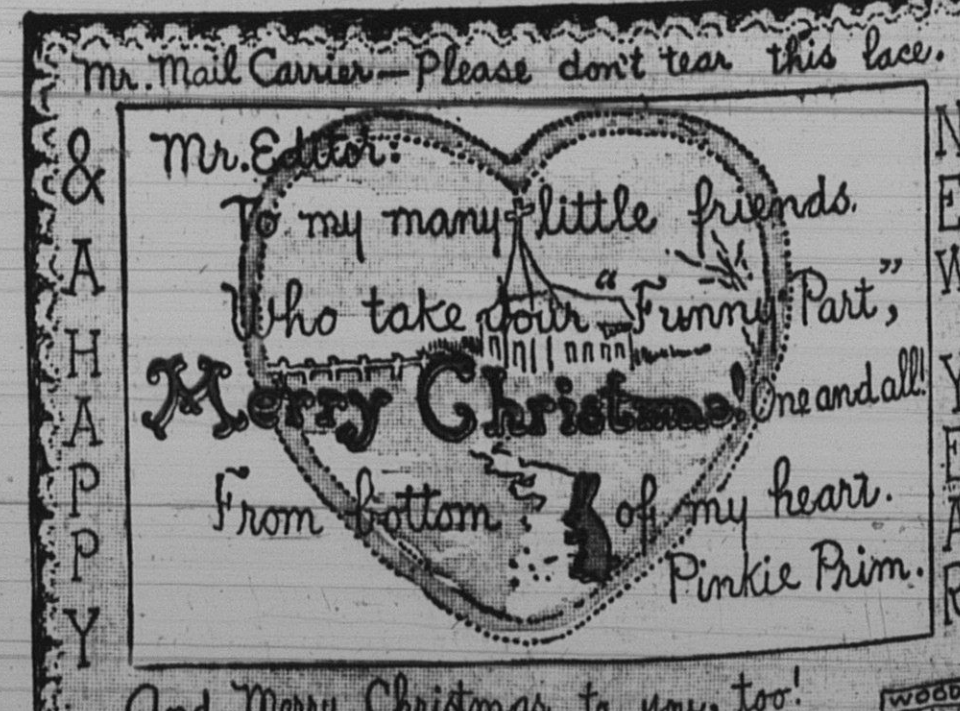 Mr. Mail Carrier — Please don't tear this lace.
& A HAPPY
Mr. Editor:
To my many little friends.
Who take your "Funny Part",
Merry Christmas! One and all!
From bottom of my heart.
Pinkie Prim.
NEW YEAR
And Merry Christmas to you, too!
WOOD